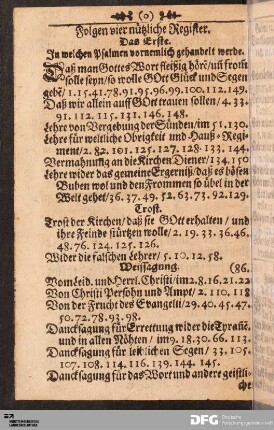 (o)
Folgen vier nützliche Register.
Das Erste.
In welchen Psalmen vornemlich gehandelt werde.
Daß man Gottes Wort fleißig hörē/uñ from̄
solle seyn/so wolle GOtt Glück und Segen
gebē/1.15.41.78.91.95.96.99.100.112.149.
Daß wir allein auff GOtt trauen sollen/4.33.
91.112.115.131.146.148.
Lehre von Vergebung der Sünden/im 51.130.
Lehre für weltliche Obrigkeit und Hauß-Regi-
ment/2.82.101.125.127.128.133.144.
Vermahnung an die Kirchen Diener/134.150
Lehre wider das gemeine Ergerniß/daß es bösen
Buben wol und den Frommen so übel in der
Welt gehet/36.37.49.52.63.73.92.129.
Trost.
Trost der Kirchen/daß sie GOtt erhalten/und
ihre Feinde stürtzen wolle/2.19.33.36.46.
48.76.124.125.126.
Wider die falschen Lehrer/5.10.12.58.
Weissagung. (86.
Vom Leid. und Herrl. Christi/im 2.8.16.21.22
Von Christi Persohn und Ampt/2.110.118
Von der Frucht des Evangelii/29.40.45.47.
50.72.78.93.98.
Dancksagung für Errettung wider die Tyrañē.
und in allen Nöhten/im 9.18.30.66.113.
Dancksagung für leiblichen Segen/33.105.
107.108.114.116.139.144.145.
Dancksagung für das Wort und andere geistli-
che
DFG Deutsche
Forschungsgemeinschaft